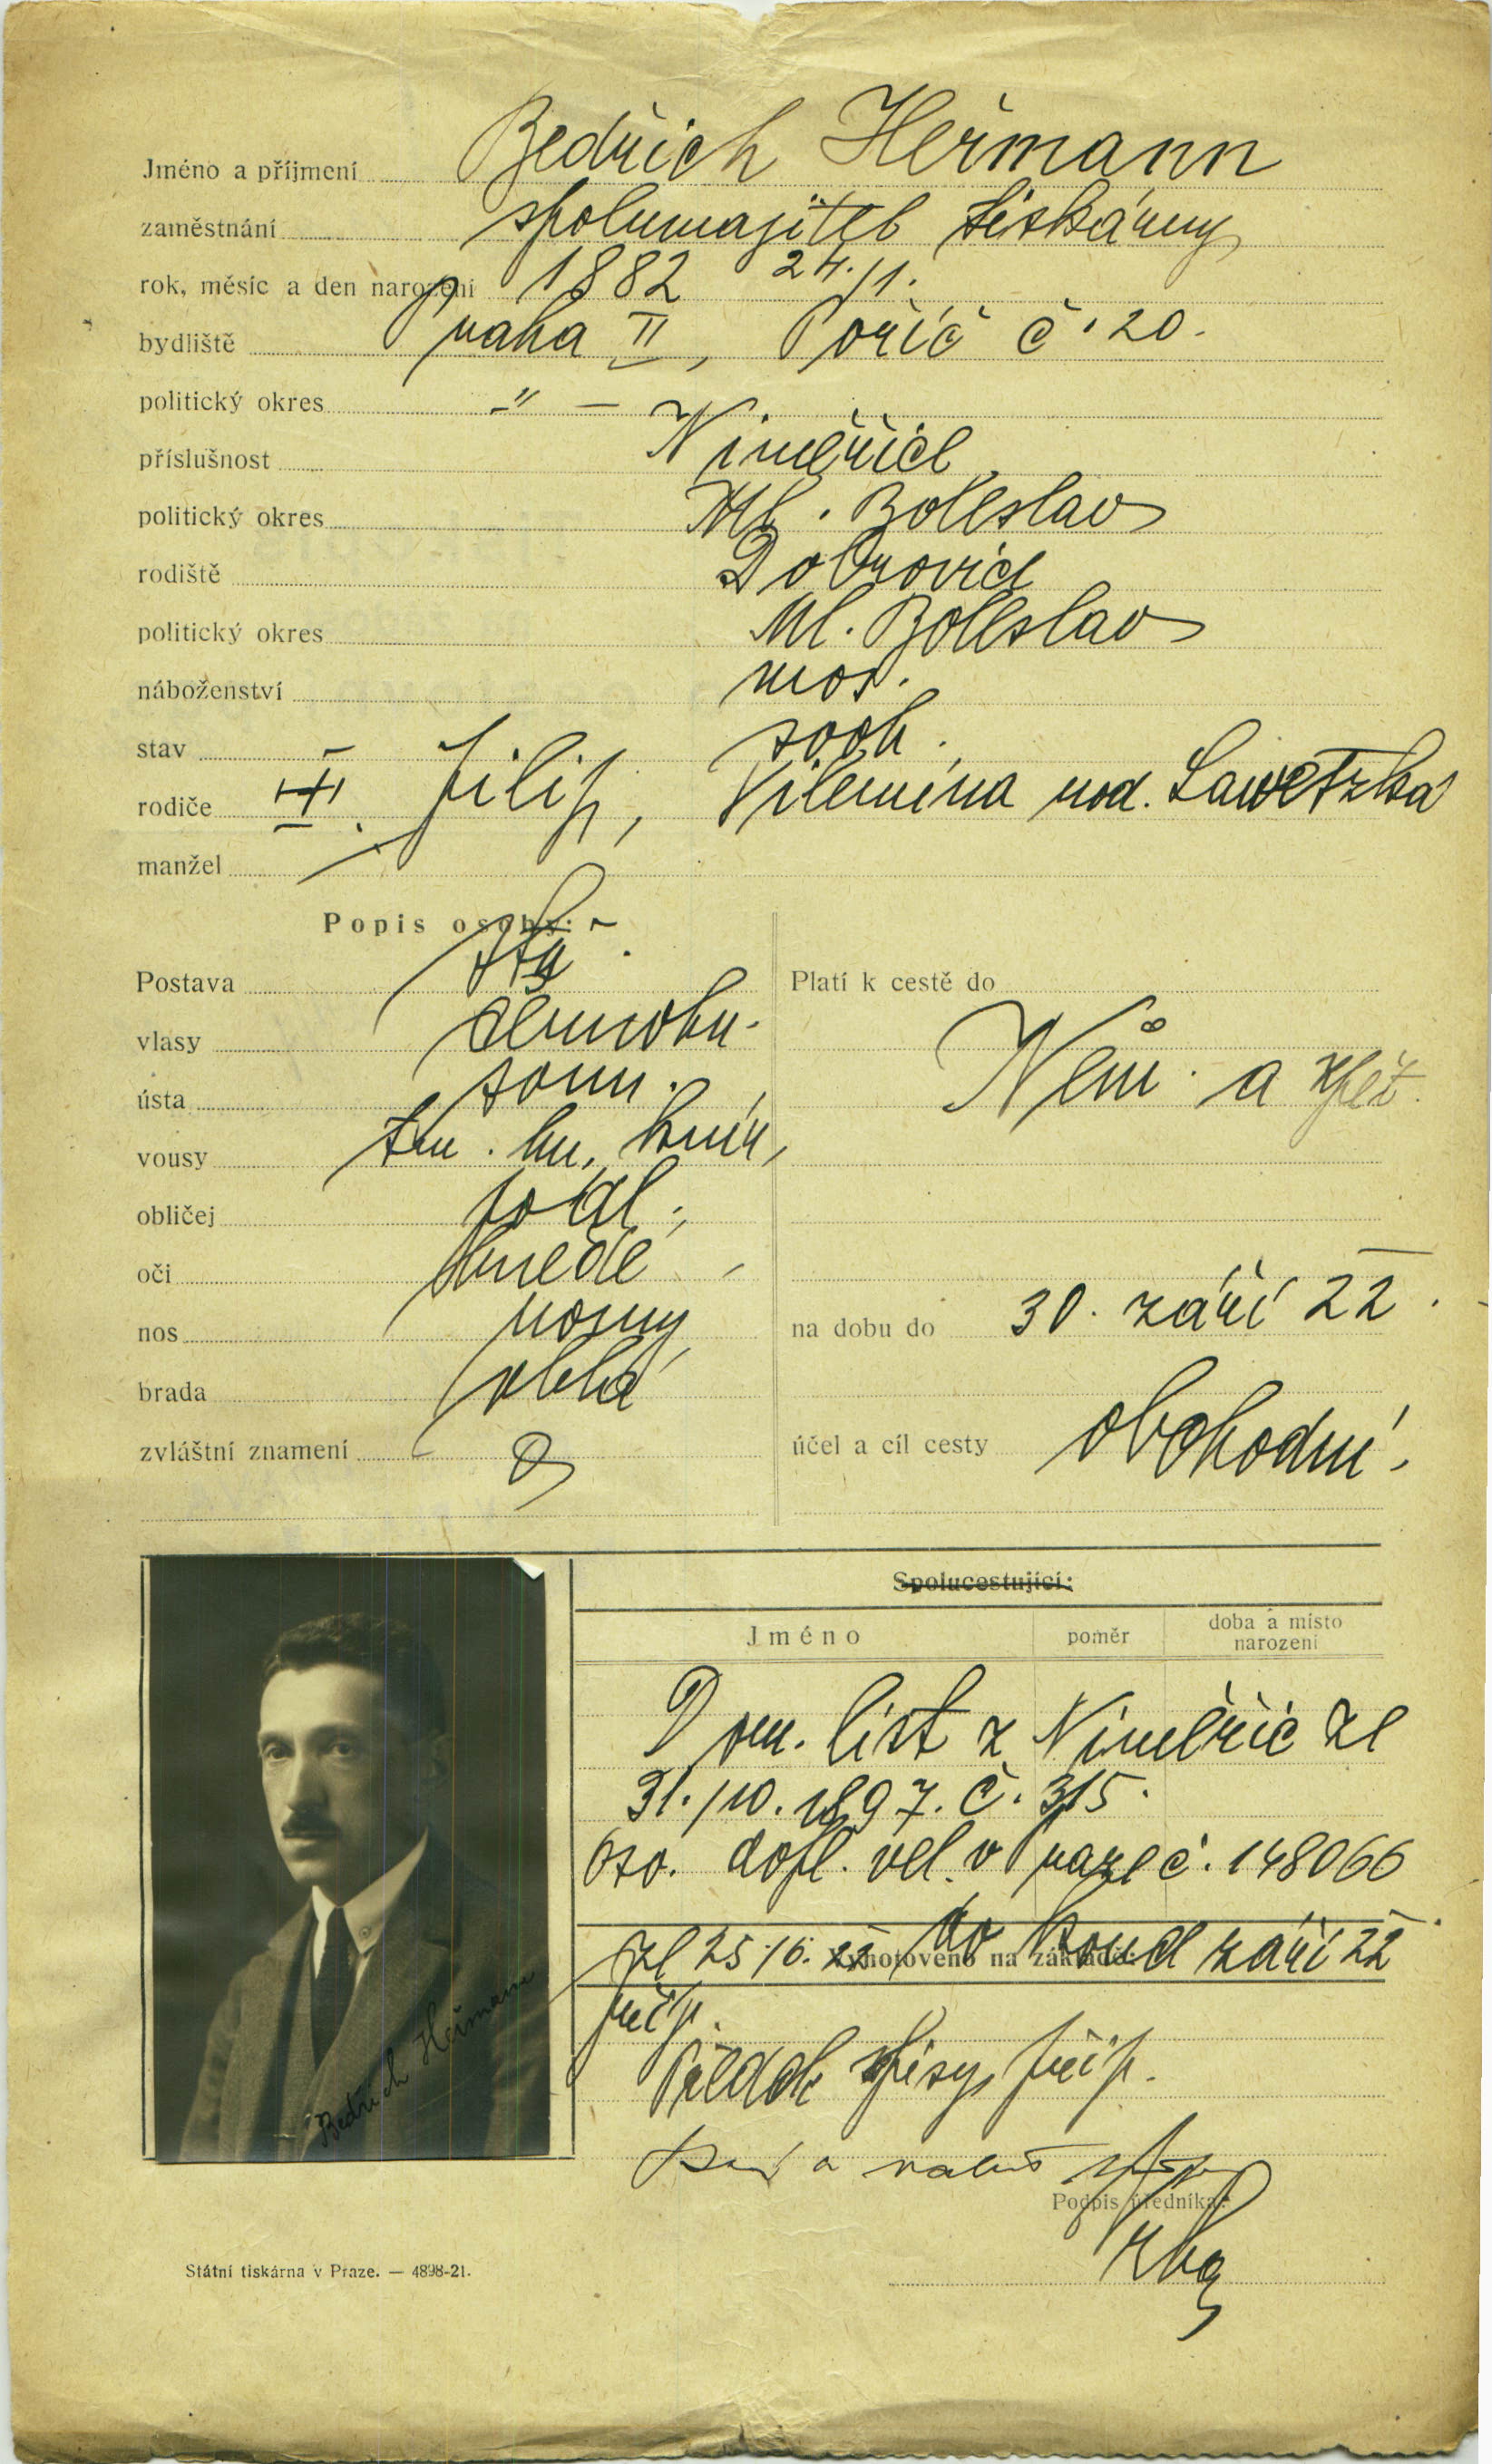 Jméno a příjmení Bedřich Heřmann
zaměstnání spolumajitel tiskárny
rok, měsíc a den narození 1882 24./1.
bydliště Praha II, Poříč č. 20.
politický okres -"-
příslušnost Niměřice
politický okres Ml. Boleslav
rodiště Dobrovice
politický okres Ml. Boleslav
náboženství mos.
stav svob.
rodiče Filip, Vilemína roz.
manžel
Popis osoby:
Postava
vlasy černohn.
ústa soum.
vousy tm. hn. knír,
obličej podl.
oči hnědé
nos rovný
brada oblá
zvláštní znamení 0
Platí k cestě do
Něm. a zpět.
na dobu do 30. září 22.
účel a cíl cesty obchodní.
Spolucestující:
Jméno poměr doba a místo narození
Dom. list z Niměřic ze
31./10. 1897. č. 315.
dopl. vel. v Praze č. 148066
ze 25./6. 22 do konce září 22
Vyhotoveno na základě:
přip.
spisy přip.
Podpis úředníka:
Bedřich Heřmann
Státní tiskárna v Praze. — 4898-21.